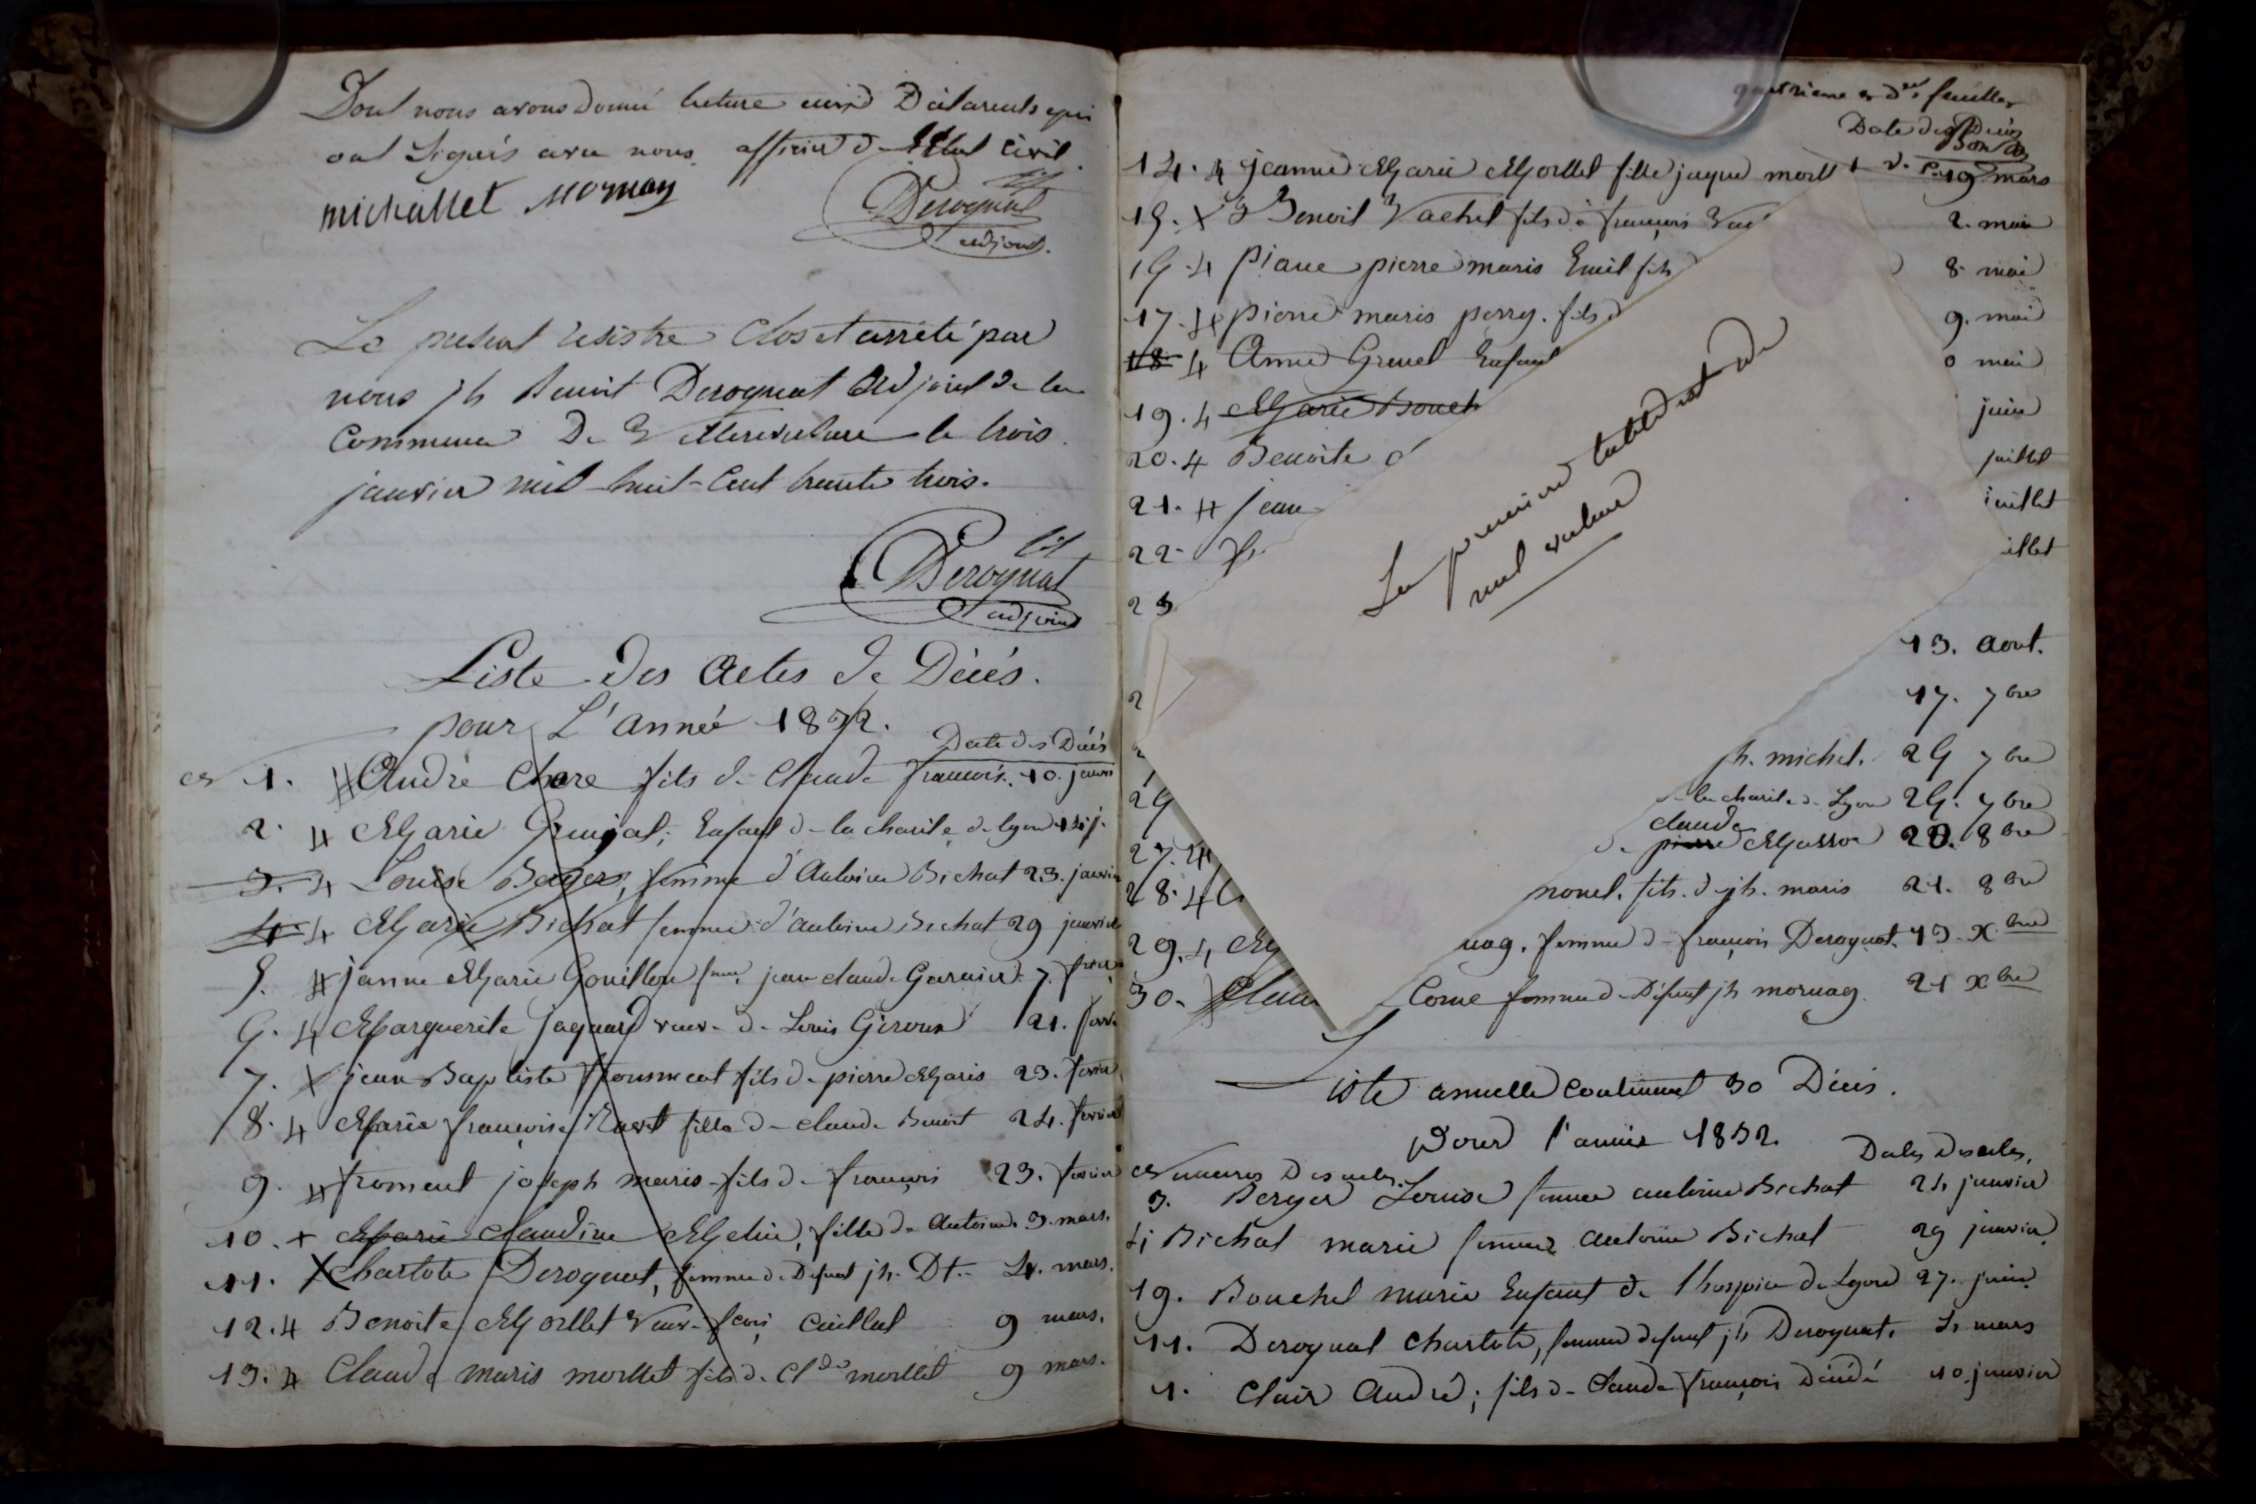 Dont nous avons donné lecture aux Déclarants qui
ont signés avec nous officier de l'Etat civil.
michallet mornay
Derognat
adjoint.
Le present registre clos et arrété par
nous jh Benoit Derognat adjoint de la
commune De Villereversure le trois
janvier mil huit-cent trente trois.
Derognat
adjoint
Liste des actes de Décés.
pour L'année 1832.
Date des Décés
1. André Chare fils de Claude francois. 10. janvier
2. 4 Marie Enfant de la charite de lyon
3. 4 Louise Berger, femme d'Antoine Bichat 23. janvier
4. 4 Marie Bichat femme d'antoine Bichat 29 janvier
5. janne Marie Gouillou jean claude Garnier 7.
6. 4 Marguerite Jaquard veuve de Louis Giroux 21.
7. X jean Baptiste froument fils de pierre Marie 23. fevrier
8. 4 Marie françoise Ravet fille de claude Benoit 24. fevrier
9. froment joseph marie fils de françois 23. fevrier
10. + Marie claudine fille de Antoine. 3. mars.
11. X Charlote Derognat, femme de Defunt jh. Dt. 4. mars.
12. 4 Benoite Morllet veuve Caillat 9 mars.
13. 4 Claude marie morllet fils de Cl.de morllet 9 mars.
quatrieme et d.re feuillet
Date des Décés
14. 4 jeanne Marie Morllet fille jaque morll 19 mars
15. X Benoit Vachet fils de françois 2. mai
16. 4 Piane pierre marie Emil fils 8 mai
17. pierre marie perry. fils d 9. mai
18. 4 Anne Gruel Enfant 0 mai
19. 4 Marie Bouch juin
20. 4 Benoite juillet
21. jean juillet
22. illet
23
Le premier tableau est de
nul valeur
13. aout.
2 17. 7bre
jh. michel. 26 7bre
26 la charite de Lyon 26. 7bre
claude
27. de pierre Masson 20. 8bre
28. 4 nouel. fils. de jh. marie 21. 8bre
29. 4 M nag. femme de françois Derognat. 13. Xbre
30. Clau Corne femme de Défunt jh mornay. 21 Xbre
Liste annuelle contenant 30 Décés.
Pour l'année 1832.
numeros Des actes. Dates Des actes.
3. Berger Louise femme antoine Bichat 24 janvier
4 Bichat marie femme antoine Bichat 29 janvier
19. Bouchel marie Enfant de l'hospice de Lyon 27. juin
11. Derognat charlote, femme defunt jh Derognat. 4 mars
1. Clair André; fils de Claude françois Décédé 10. janvier